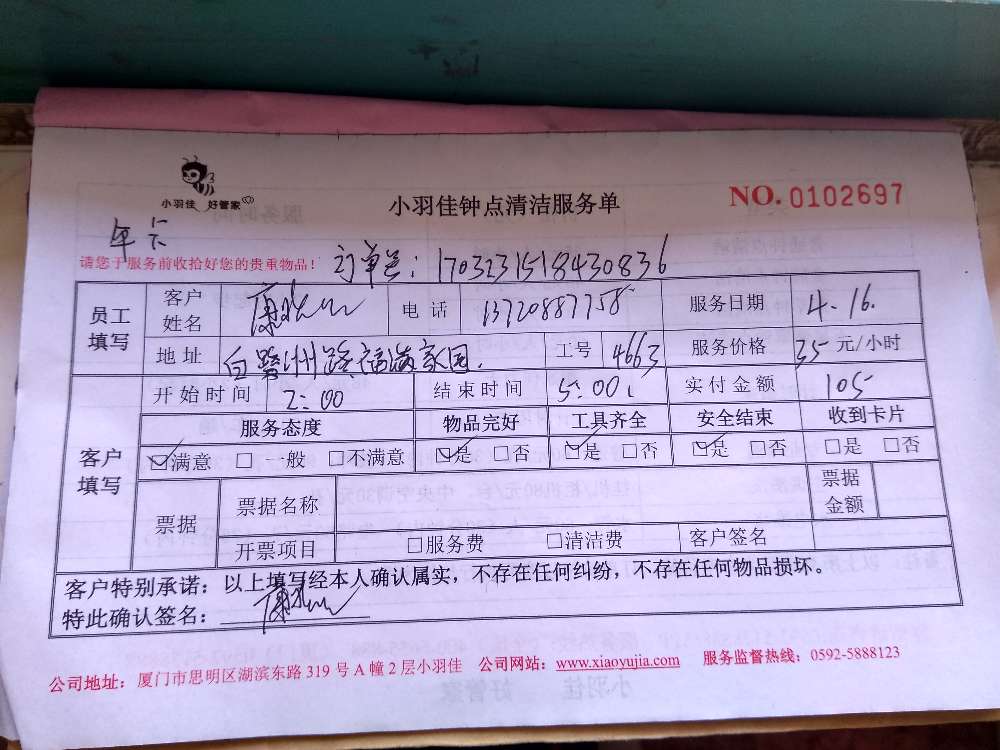 小羽佳 好管家
小羽佳钟点清洁服务单
NO. 0102697
年卡
请您于服务前收拾好您的贵重物品！
订单号：1703231518430836
员工填写 客户姓名 康 电话 13720887758 服务日期 4-16.
地址 白鹭洲路福满家园. 工号 4663 服务价格 35 元/小时
客户填写 开始时间 2:00 结束时间 5:00 实付金额 105
服务态度 物品完好 工具齐全 安全结束 收到卡片
☑满意 □一般 □不满意 ☑是 □否 ☑是 □否 ☑是 □否 □是 □否
票据 票据名称 票据金额
开票项目 □服务费 □清洁费 客户签名
客户特别承诺：以上填写经本人确认属实，不存在任何纠纷，不存在任何物品损坏。
特此确认签名：康
公司地址：厦门市思明区湖滨东路 319 号 A 幢 2 层小羽佳 公司网站：www.xiaoyujia.com 服务监督热线：0592-5888123